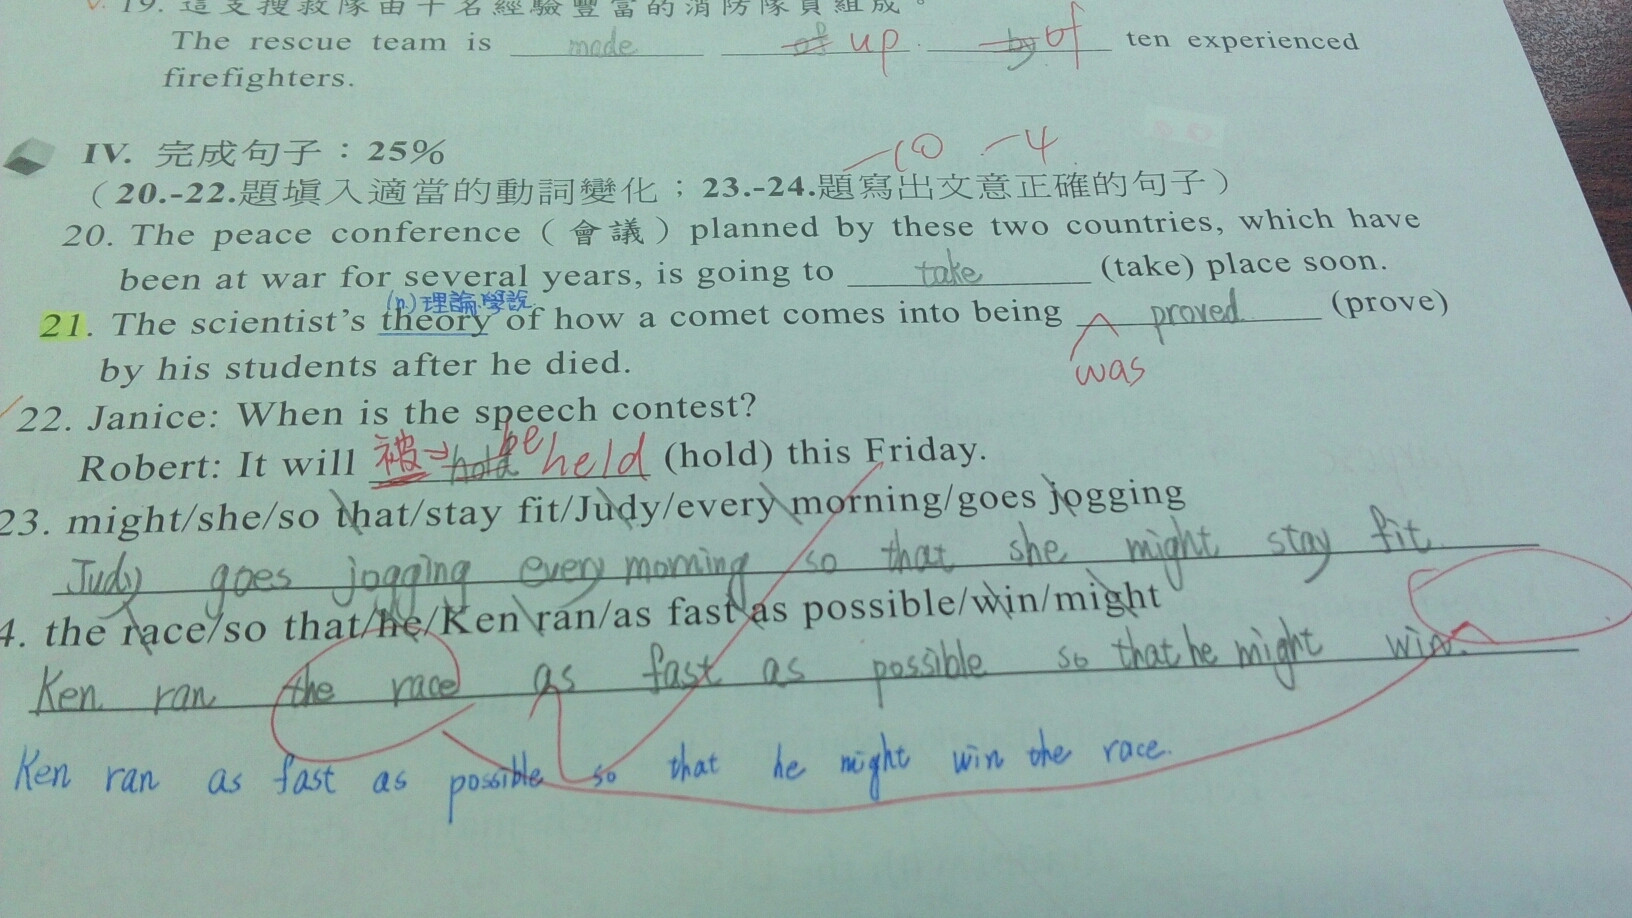 19. 這支搜救隊由十名經驗豐富的消防隊員組成。
The rescue team is made of up by of ten experienced
firefighters.
-10 -4
IV. 完成句子：25%
（20.-22.題填入適當的動詞變化；23.-24.題寫出文意正確的句子）
20. The peace conference（會議）planned by these two countries, which have
been at war for several years, is going to take (take) place soon.
(n.)理論、學說
21. The scientist's theory of how a comet comes into being proved (prove)
was
by his students after he died.
22. Janice: When is the speech contest?
Robert: It will 被→ hold be held (hold) this Friday.
23. might/she/so that/stay fit/Judy/every morning/goes jogging
Judy goes jogging every morning so that she might stay fit
4. the race/so that/he/Ken ran/as fast as possible/win/might
Ken ran the race as fast as possible so that he might win.
Ken ran as fast as possible so that he might win the race.